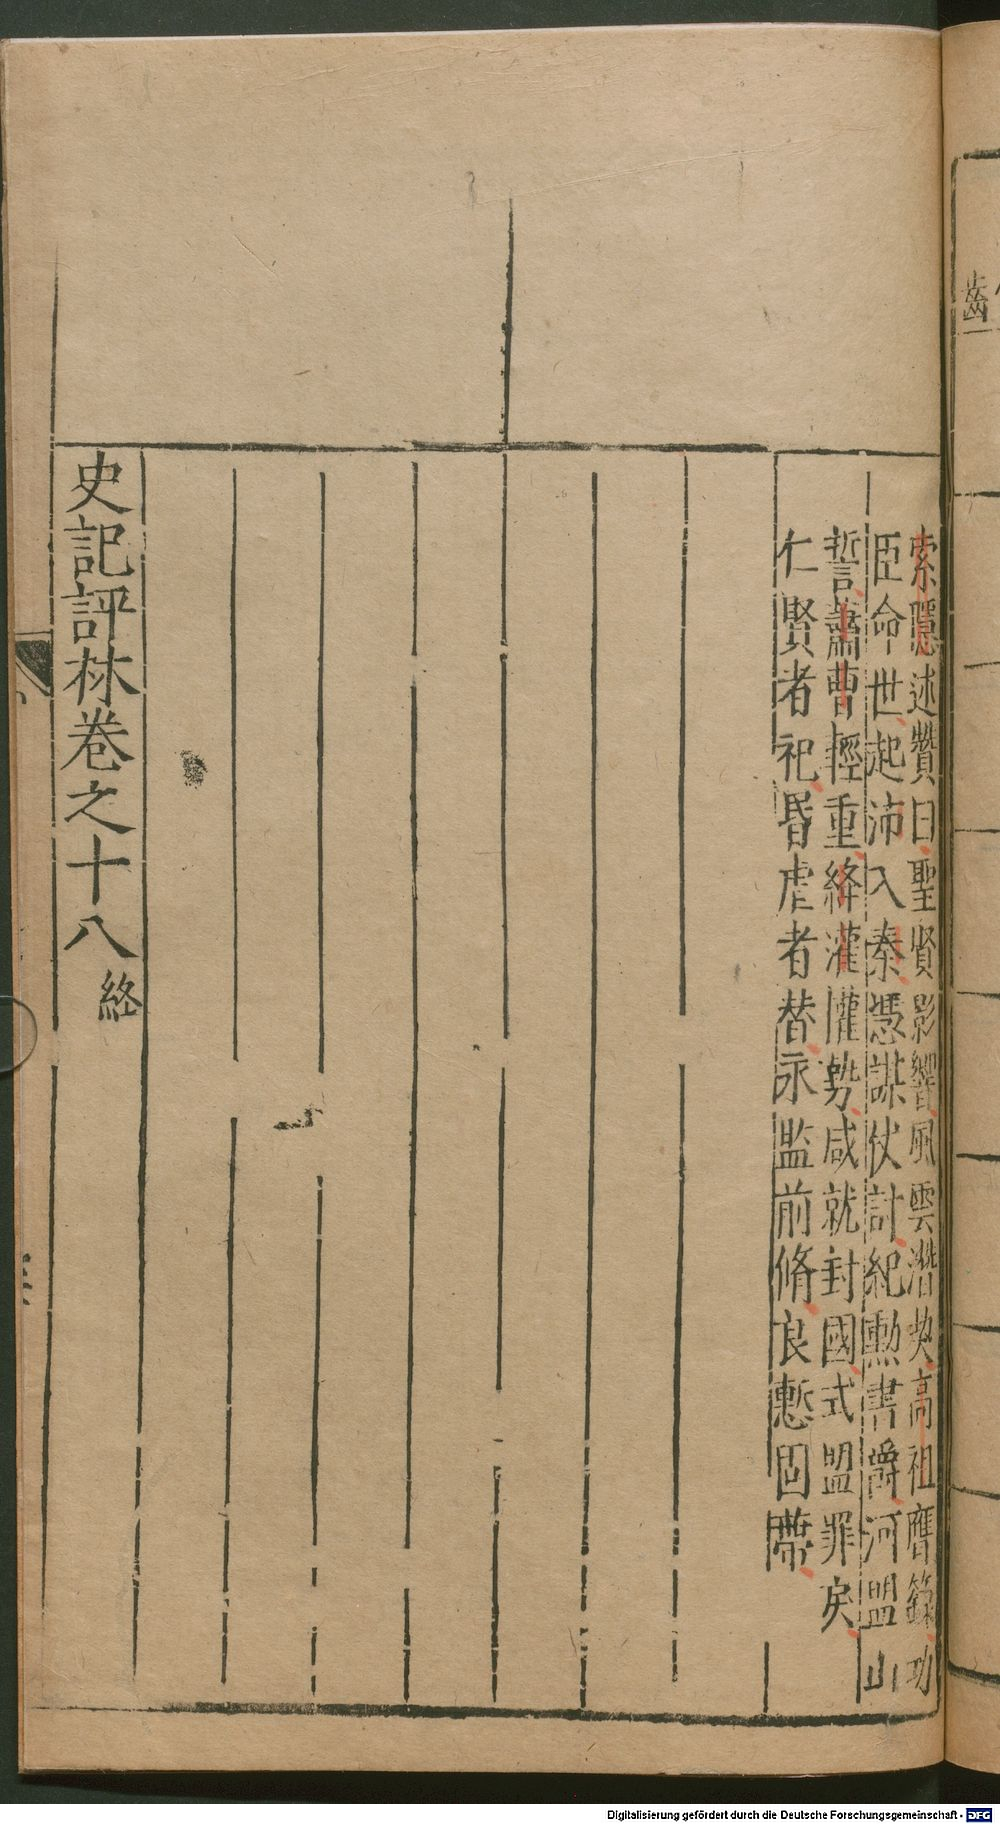 齒
索隱述贊曰聖賢影響風雲潛契高祖膺籙功
臣命世起沛入秦憑謀仗計紀勲書爵河盟山
誓蕭曹輕重絳灌權勢咸就封國式盟罪戾
仁賢者祀昬虐者替永監前脩良慙固蔕
史記評林卷之十八 終
Digitalisierung gefördert durch die Deutsche Forschungsgemeinschaft - DFG